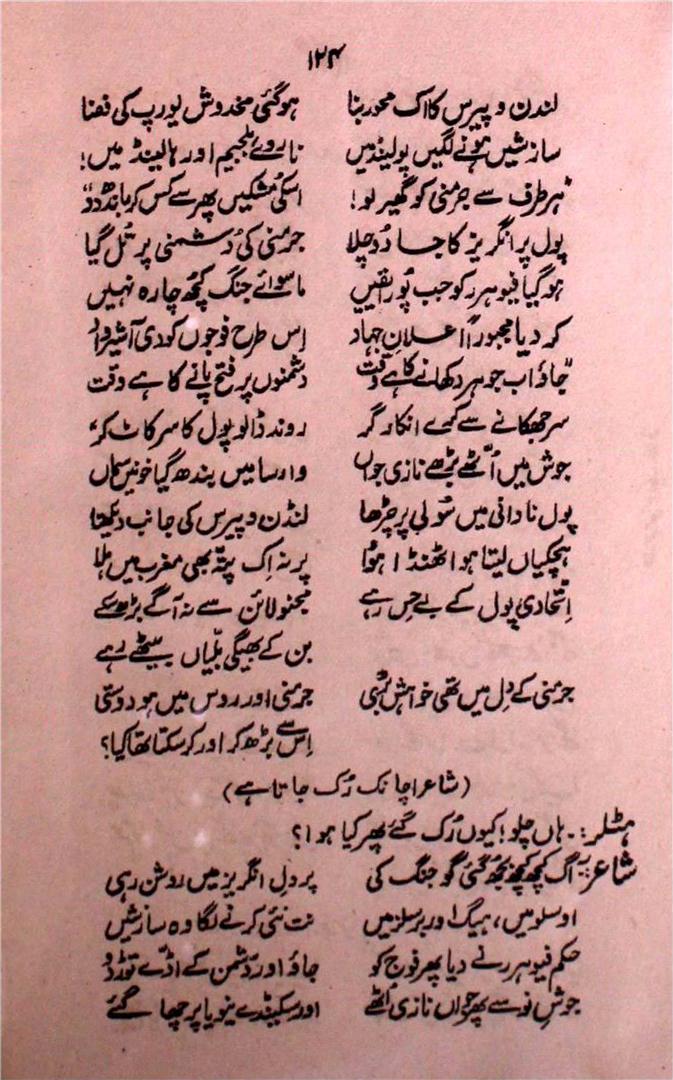 ۱۲۴
لندن و پیرس کا اک محور بنا ہوگئی مخدوش یورپ کی فضا
سازشیں ہونے لگیں پولینڈ میں ناروے بلجیم اور ہالینڈ میں!
"ہر طرف سے جرمنی کو گھیر لو! اسکی مشکیں پھر سے کس کر باندھ دو"
پول پر انگریز کا جادو چلا جرمنی کی دشمنی پر تُل گیا
ہوگیا فیوہرر کو جب پورا یقیں ماسوائے جنگ کچھ چارہ نہیں
کر دیا مجبوراً اعلانِ جہاد اِس طرح فوجوں کو دی آشیرواد
"جاؤ اب جوہر دکھانے کا ہے وقت دشمنوں پر فتح پانے کا ہے وقت
سر جھکانے سے کرے انکار گر روند ڈالو پول کا سر کاٹ کر"
جوش میں اُٹھے بڑھے نازی جواں وارسا میں بندھ گیا خونیں سماں
پول نادانی میں سُولی پر چڑھا لنڈن و پیرس کی جانب دیکھتا
ہچکیاں لیتا ہوا ٹھنڈا ہوُا پر نہ اِک پتّہ بھی مغرب میں ہلا
اِتحادی پول کے بے حِس رہے میجنو لائن سے نہ آگے بڑھ سکے
بن کے بھیگی بلّیاں بیٹھے رہے
جرمنی کے دِل میں تھی خواہش یہی جرمنی اور روس میں ہو دوستی
اِس سے بڑھ کر اور کر سکتا تھا کیا؟
(شاعر اچانک رُک جاتا ہے)
ہٹلر:۔ ہاں چلو! کیوں رُک گئے پھر کیا ہوا؟
شاعر:۔ آگ کچھ کچھ بجھ گئی گو جنگ کی پر دلِ انگریز میں روشن رہی
اوسلو میں، ہیگ اور برسلز میں نت نئی کرنے لگا وہ سازشیں
حکم فیوہرر نے دیا پھر فوج کو جاؤ اور دشمن کے اڈّے توڑ دو
جوشِ نو سے پھر جواں نازی اُٹھے اور سکینڈے نیویا پر چھا گئے